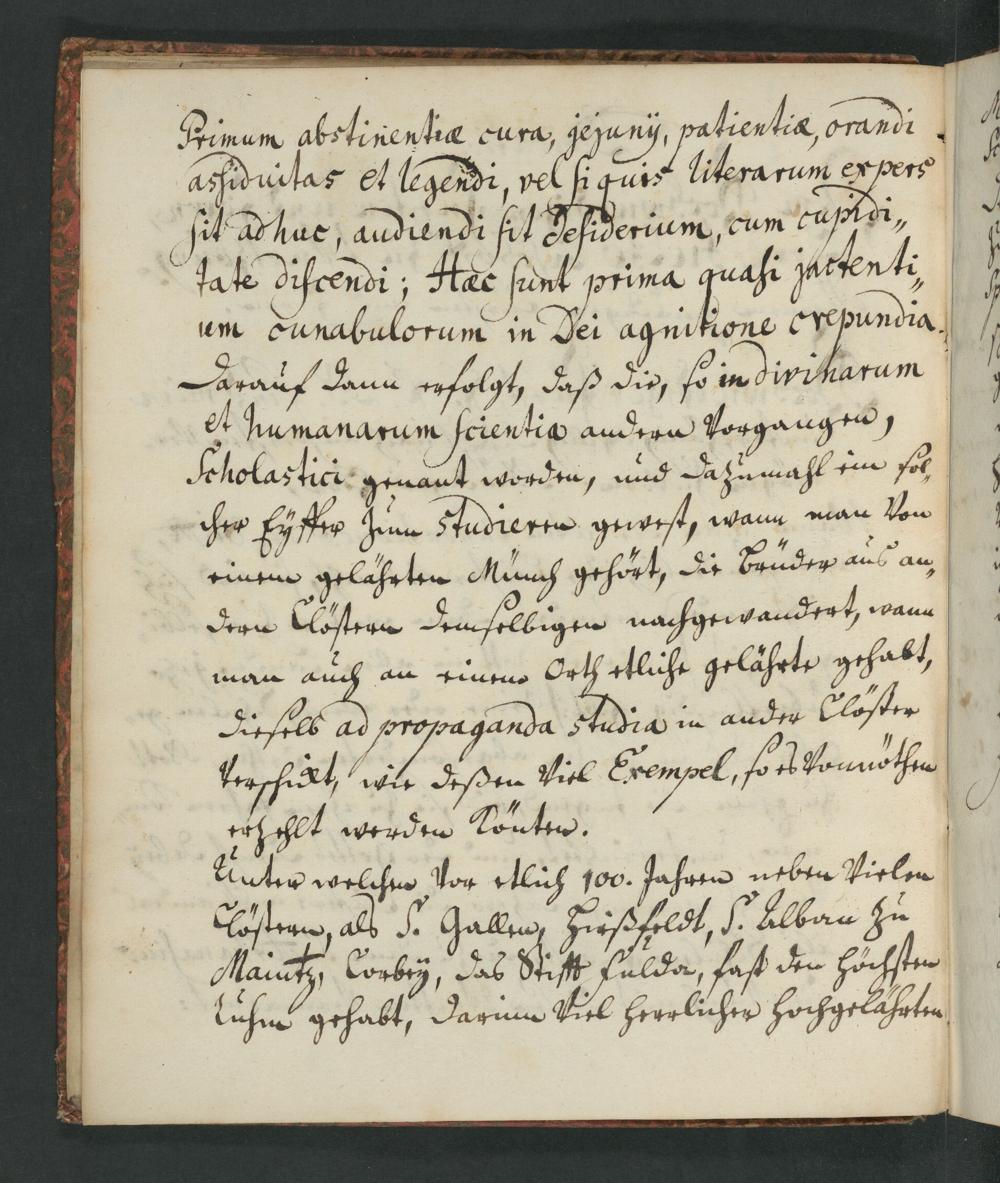 Primum abstinentiæ cura, jejunÿ, patientiæ, orandi
assiduitas et legendi, vel si quis literarum expers
sit adhuc, audiendi sit desiderium, cum cupidi„
tate discendi; Hæc sunt prima quasi jactenti„
um cunabulorum in Dei agnitione crepundia.
Darauf dann erfolgt, daß die, so in divinarum
et humanarum scientia andern Vorgangen,
Scholastici genant worden, und dazumahl ein sol„
cher Eÿffer zum studieren gewest, wann man Von
einem gelährten Münch gehört, die Brüder aus an„
dern Clöstern demselbigen nachgewandert, wann
man auch an einem Orth etliche gelährte gehabt,
dieselb ad propaganda studia in ander Clöster
Verschickt, wie deßen Viel Exempel, so es Vonnöthen
erzehlt werden Könten.
Unter welchen Vor etlich 100. Jahren neben Vielen
Clöstern, als S. Gallen, Hirßfeldt, S. Alban zu
Maintz, Corbeÿ, das Stifft Fulda, fast den höchsten
Ruhm gehabt, darinn Viel herrlicher hochgelährten